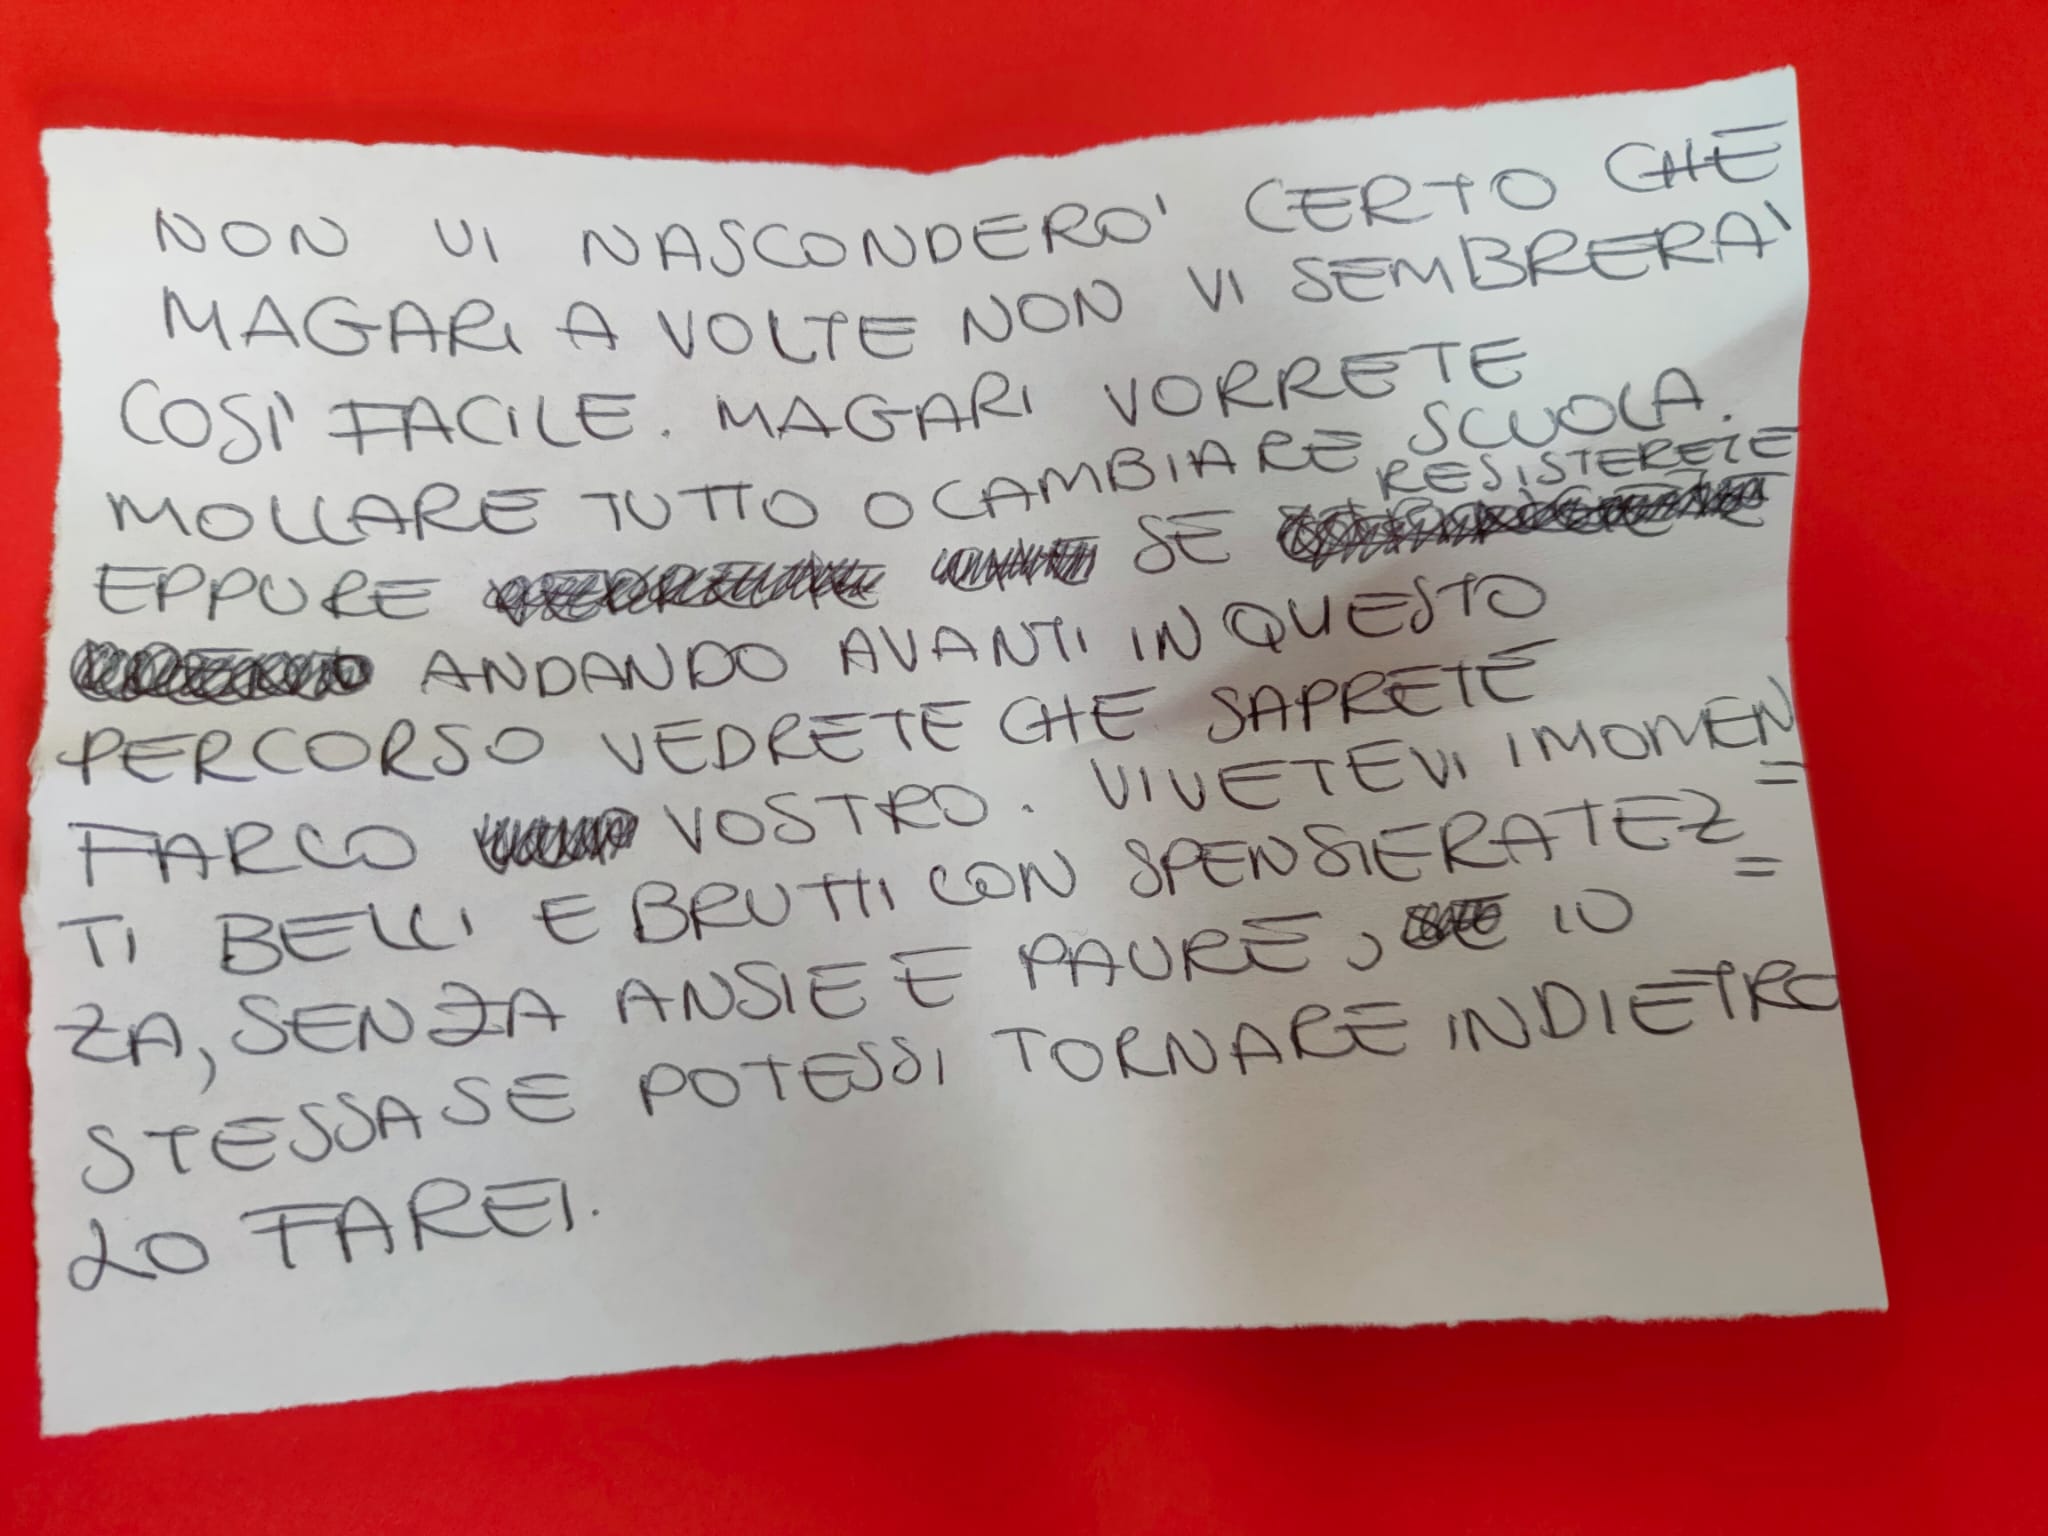 NON VI NASCONDERO' CERTO CHE
MAGARI A VOLTE NON VI SEMBRERA'
COSI' FACILE. MAGARI VORRETE
MOLLARE TUTTO O CAMBIARE SCUOLA.
EPPURE SE RESISTERETE
ANDANDO AVANTI IN QUESTO
PERCORSO VEDRETE CHE SAPRETE
FARLO VOSTRO. VIVETEVI I MOMEN=
TI BELLI E BRUTTI CON SPENSIERATEZ=
ZA, SENZA ANSIE E PAURE, IO
STESSA SE POTESSI TORNARE INDIETRO
LO FAREI.